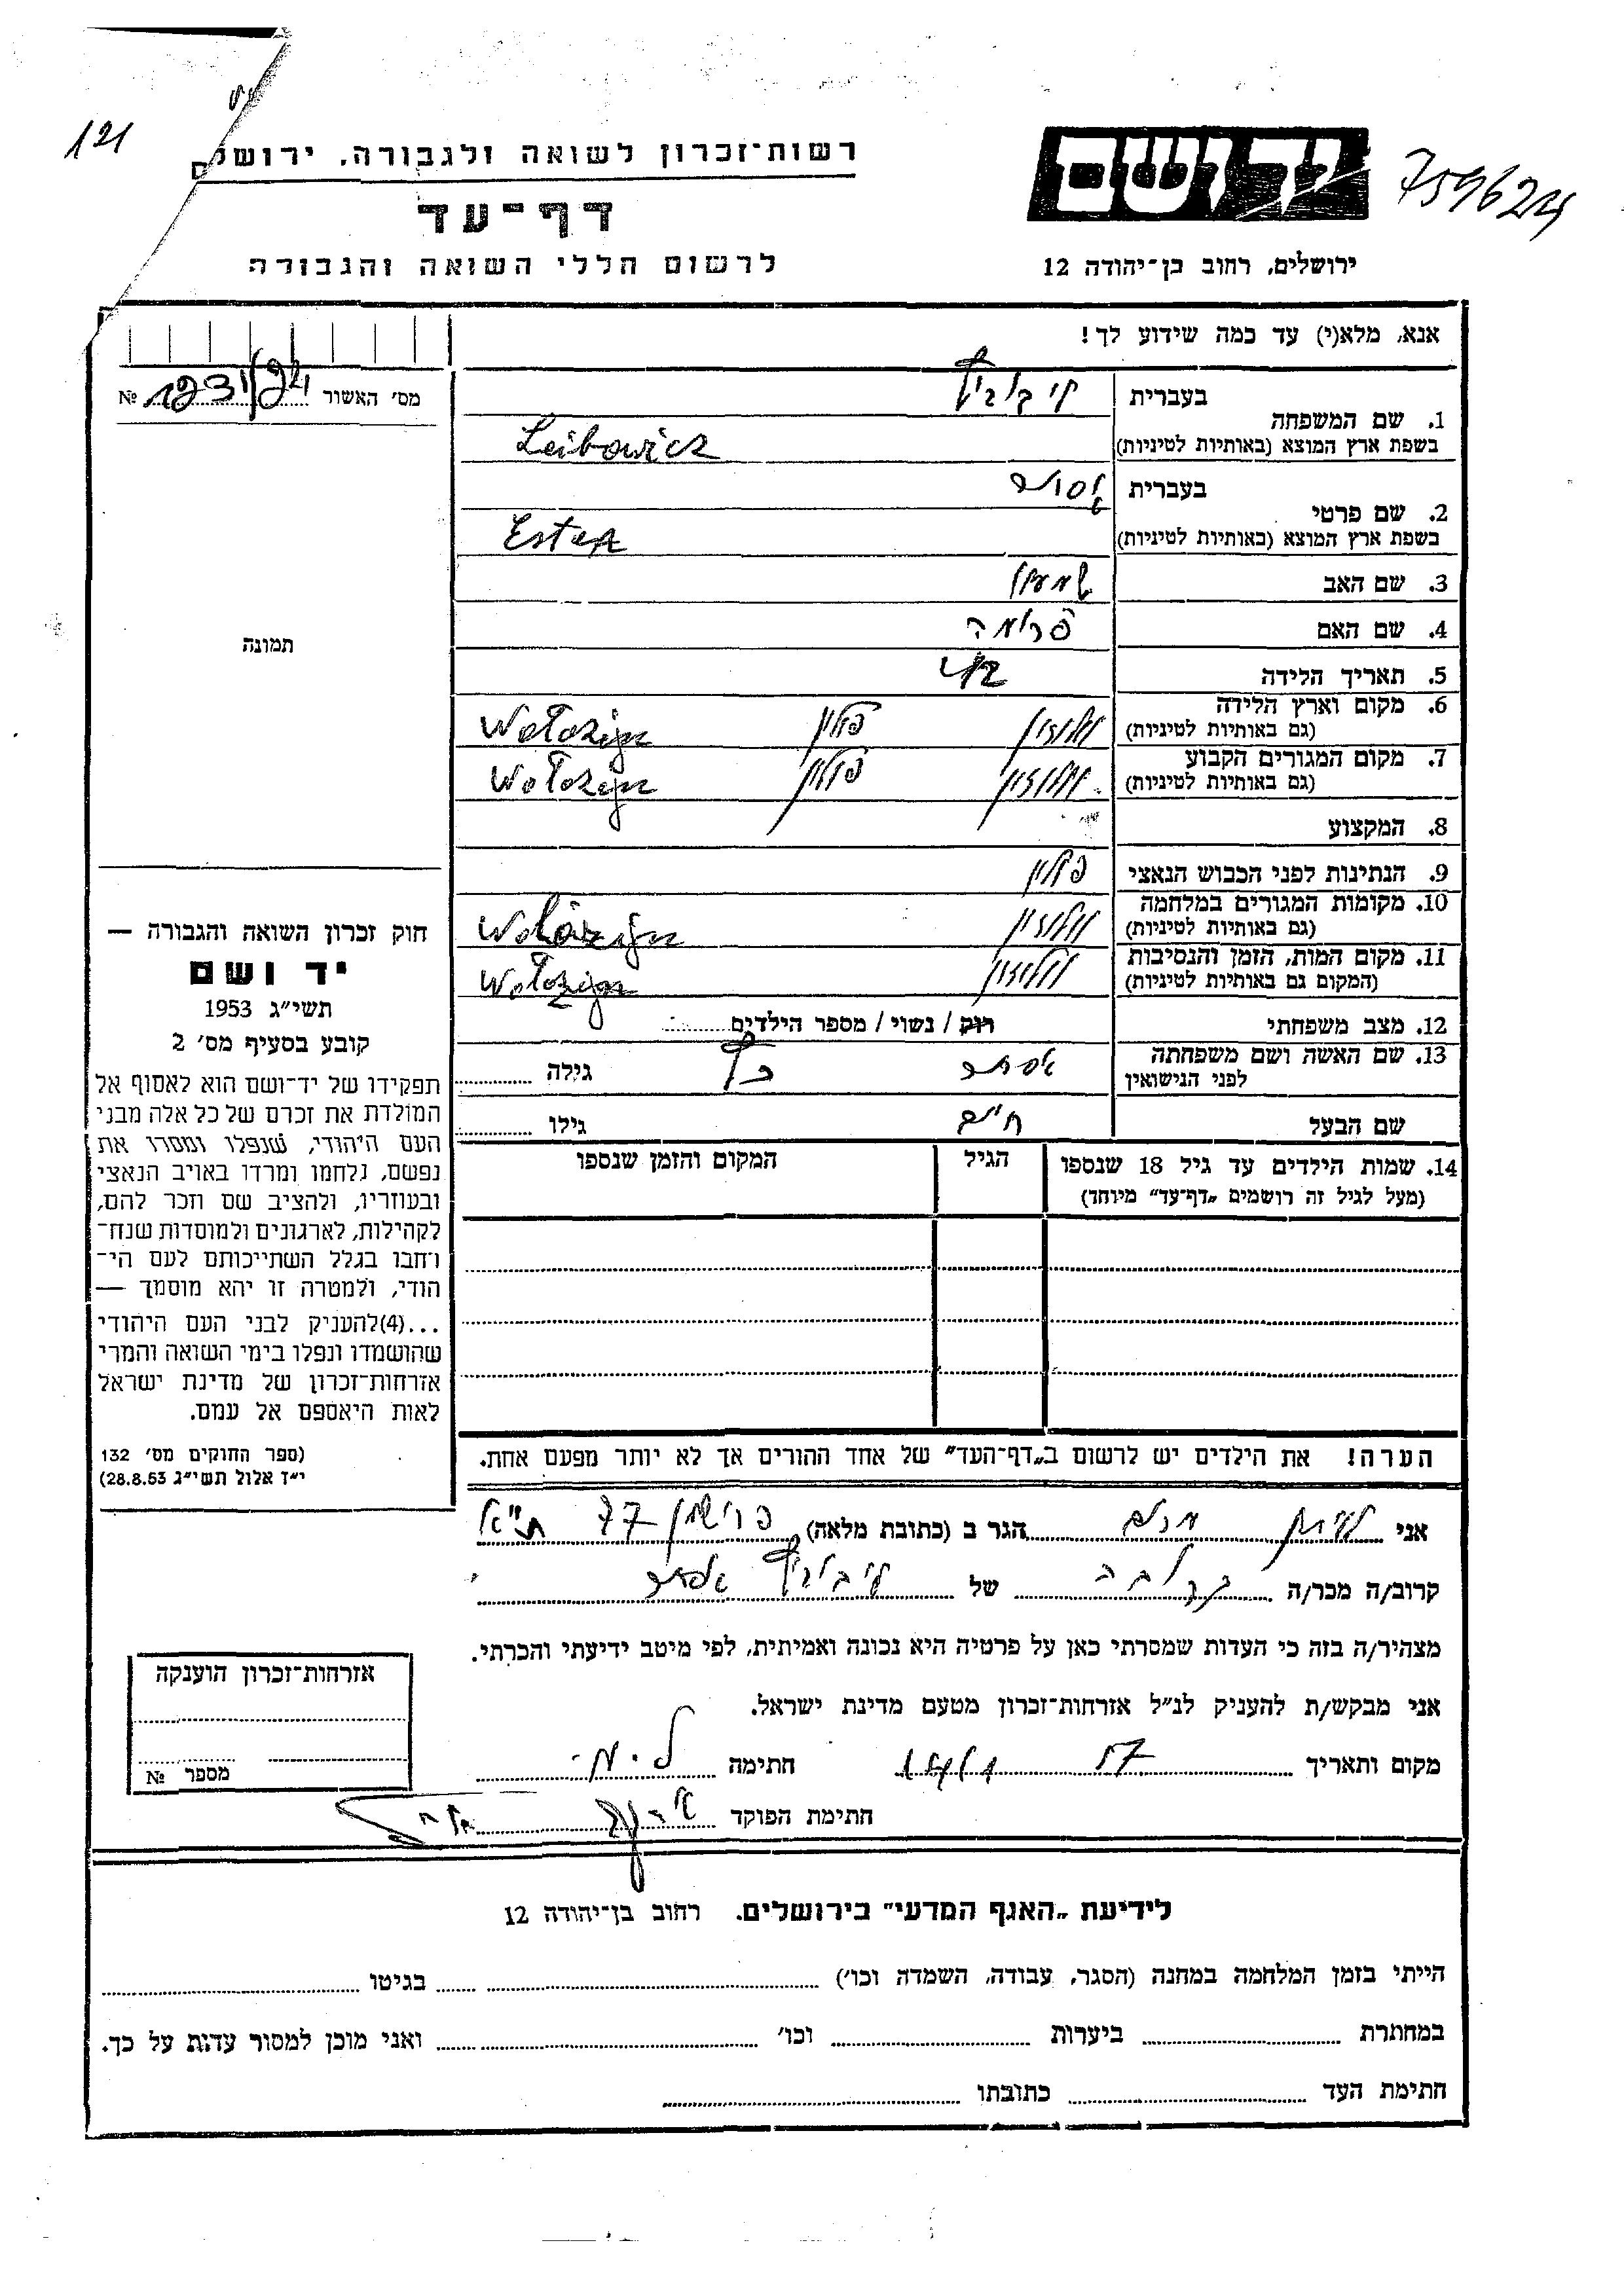 121
759624
רשות־זכרון לשואה ולגבורה, ירושלים
יד ושם
דף־עד
לרשום חללי השואה והגבורה
ירושלים, רחוב בן־יהודה 12
אנא, מלא(י) עד כמה שידוע לך!
מס׳ האשור № 1231/24
1. שם המשפחה
בעברית
ליבוביץ
בשפת ארץ המוצא (באותיות לטיניות) Leibowicz
2. שם פרטי
בעברית אסתר
בשפת ארץ המוצא (באותיות לטיניות) Ester
3. שם האב שמעון
4. שם האם פרומה
5. תאריך הלידה
6. מקום וארץ הלידה
(גם באותיות לטיניות) וולוז׳ין פולין Wołożyn
7. מקום המגורים הקבוע
(גם באותיות לטיניות) וולוז׳ין פולין Wołożyn
8. המקצוע
9. הנתינות לפני הכבוש הנאצי פולין
10. מקומות המגורים במלחמה
(גם באותיות לטיניות) וולוז׳ין Wołożyn
11. מקום המות, הזמן והנסיבות
(המקום גם באותיות לטיניות) וולוז׳ין Wołożyn
12. מצב משפחתי רוק / נשוי / מספר הילדים
13. שם האשה ושם משפחתה
לפני הנישואין אסתר כץ גילה
שם הבעל חיים גילו
14. שמות הילדים עד גיל 18 שנספו
(מעל לגיל זה רושמים „דף־עד״ מיוחד)
הגיל
המקום והזמן שנספו
הערה! את הילדים יש לרשום ב„דף־העד״ של אחד ההורים אך לא יותר מפעם אחת.
תמונה
חוק זכרון השואה והגבורה —
יד ושם
תשי״ג 1953
קובע בסעיף מס׳ 2
תפקידו של יד־ושם הוא לאסוף אל
המולדת את זכרם של כל אלה מבני
העם היהודי, שנפלו ומסרו את
נפשם, נלחמו ומרדו באויב הנאצי
ובעוזריו, ולהציב שם וזכר להם,
לקהילות, לארגונים ולמוסדות שנח־
רחבו בגלל השתייכותם לעם הי־
הודי, ולמטרה זו יהא מוסמך —
...(4)להעניק לבני העם היהודי
שהושמדו ונפלו בימי השואה והמרי
אזרחות־זכרון של מדינת ישראל
לאות היאספם אל עמם.
(ספר החוקים מס׳ 132
י״ז אלול תשי״ג 28.8.53)
אני מנחם הגר ב (כתובת מלאה) פרישמן 77 ת״א
קרוב/ה מכר/ה קרובה של ליבוביץ אסתר
מצהיר/ה בזה כי העדות שמסרתי כאן על פרטיה היא נכונה ואמיתית, לפי מיטב ידיעתי והכרתי.
אני מבקש/ת להעניק לנ״ל אזרחות־זכרון מטעם מדינת ישראל.
מקום ותאריך 57 חתימה ל. מ.
חתימת הפוקד
אזרחות־זכרון הוענקה
מספר №
לידיעת „האגף המדעי״ בירושלים. רחוב בן־יהודה 12
הייתי בזמן המלחמה במחנה (הסגר, עבודה, השמדה וכו׳) בגיטו
במחתרת ביערות וכו׳ ואני מוכן למסור עדות על כך.
חתימת העד כתובתו